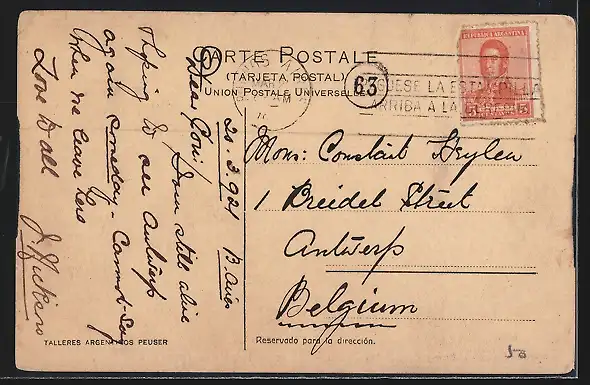 CARTE POSTALE
(TARJETA POSTAL)
UNION POSTALE UNIVERSELLE
BUENOS AIRES
MAR
AM
63
PEGUESE LA ESTAMPILLA
ARRIBA A LA
REPUBLICA ARGENTINA
5 5
20.3.921 B. Aires
Dear Gon,
I am still alive
Hoping to see Antwerp
again someday - Cannot say
when we leave here
Love to all
Mons: Constant Heylen
1 Breidel Street
Antwerp
Belgium
TALLERES ARGENTINOS PEUSER
Reservado para la dirección.